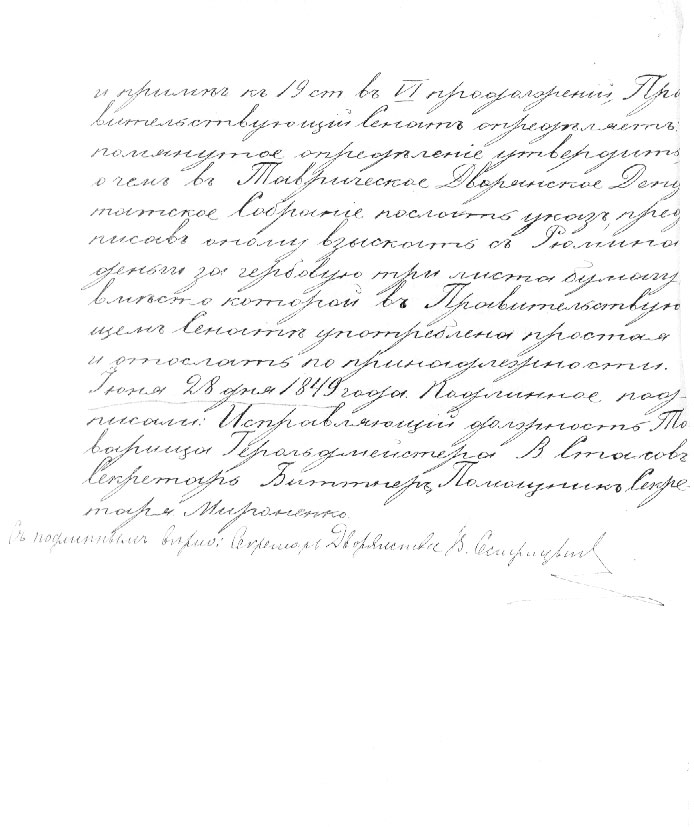 и примѣч къ 19 ст въ VI продолженіи, Пра
вительствующій Сенатъ опредѣляетъ:
помянутое опредѣленіе утвердить
о чемъ въ Таврическое Дворянское Депу
татское Собраніе послать указъ, пред
писавъ оному взыскать съ Рюмина
деньги за гербовую три листа бумагу
вмѣсто которой въ Правительствую
щемъ Сенатѣ употреблена простая
и отослать по принадлежности.
Іюня 28 дня 1849 года. Подлинное под
писали: Исправляющій должность То
варища Герольдмейстера В Стасовъ
Секретарь Биттнеръ, Помощникъ Секре
таря Мироненко.
Съ подлиннымъ вѣрно: Секретарь Дворянства В.